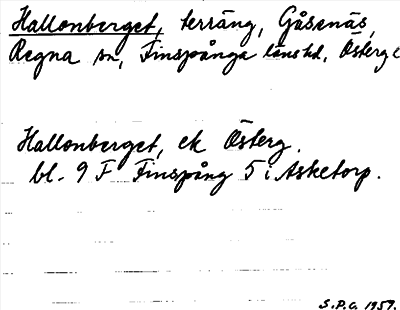 Hallonberget, terräng, Gåsenäs,
Regna sn, Finspånga länshd, Österg
Hallonberget, ek Österg.
bl. 9 F Finspång 5 i Asketorp.
S.P.G. 1957.